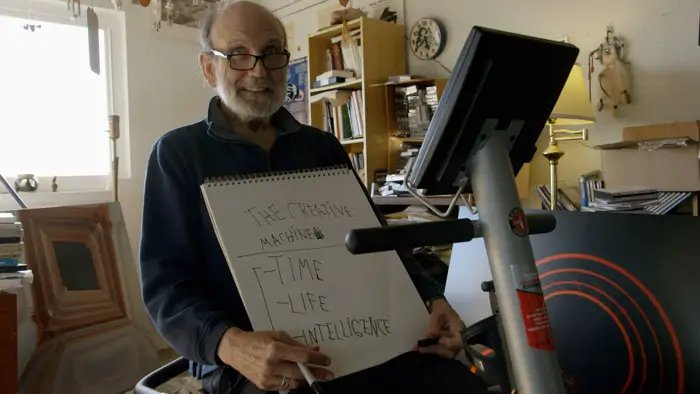 THE CREATIVE
MACHINE
-TIME
-LIFE
-INTELLIGENCE